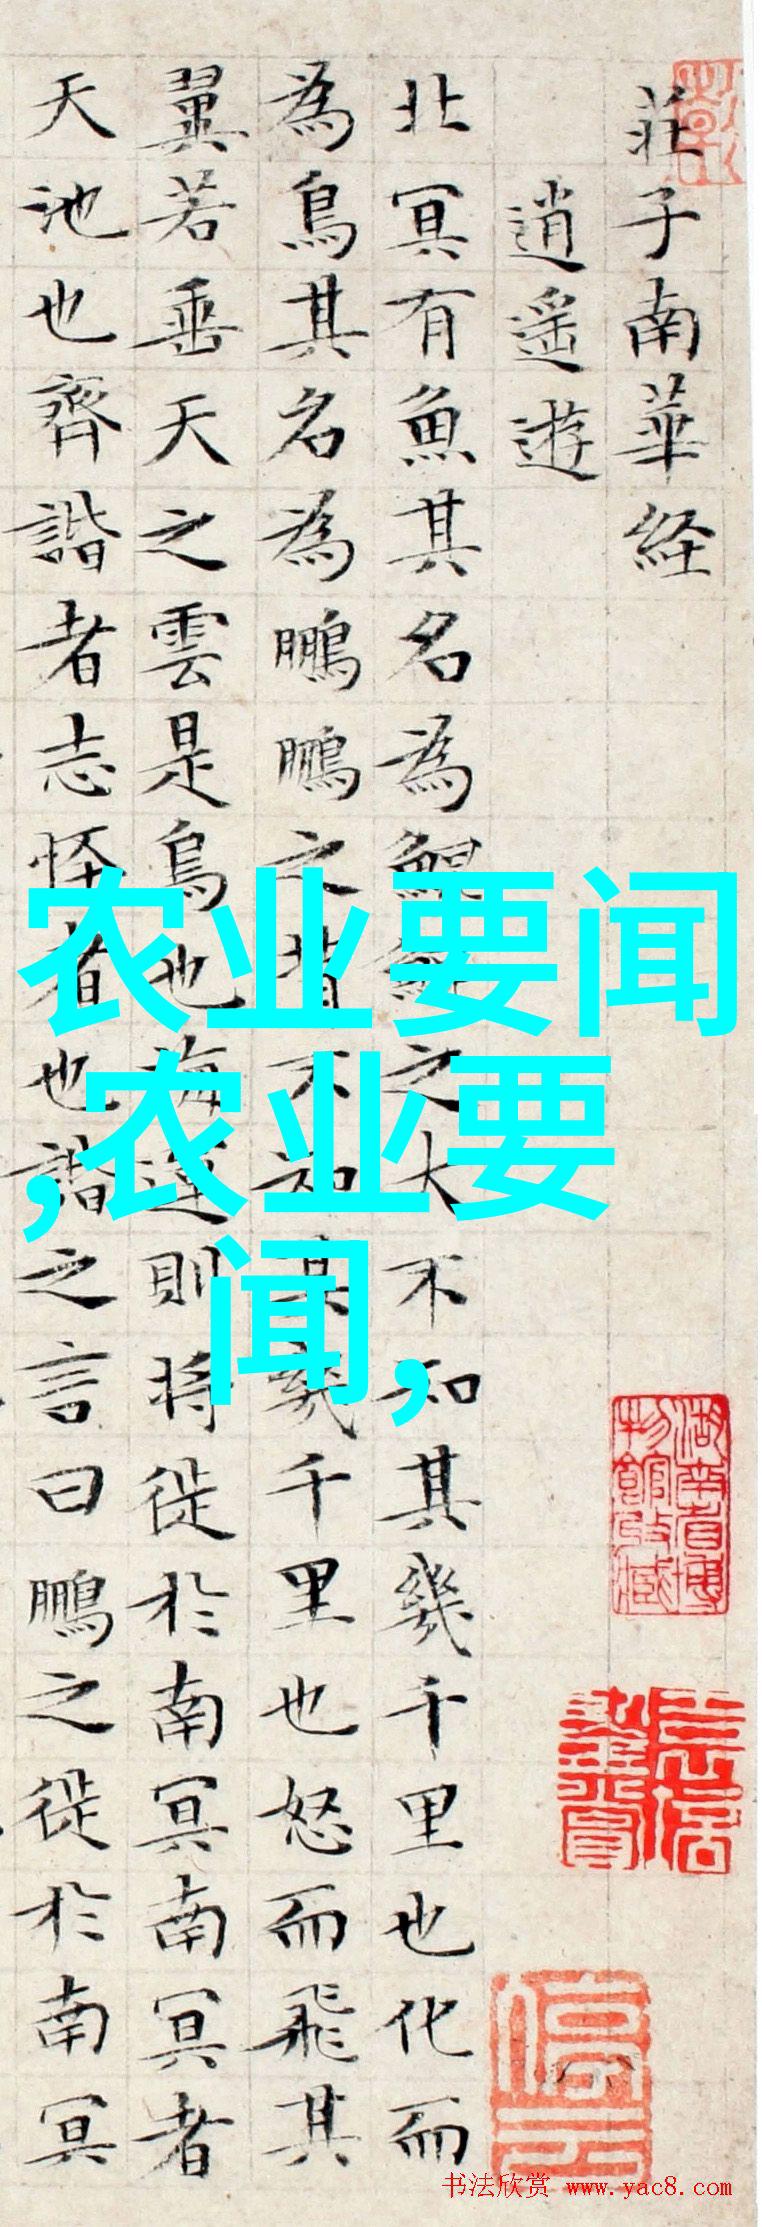 莊子南華経
逍遥遊
北冥有魚其名為鯤鯤之大不知其幾千里也化而
為鳥其名為鵬鵬之背不知其幾千里也怒而飛其
翼若垂天之雲是鳥也海運則将徙於南冥南冥者
天池也齊諧者志怪者也諧之言曰鵬之徙於南冥
农业要闻
,农业要
闻,
湖南省博
物館收藏
书法欣赏 www.yac8.com